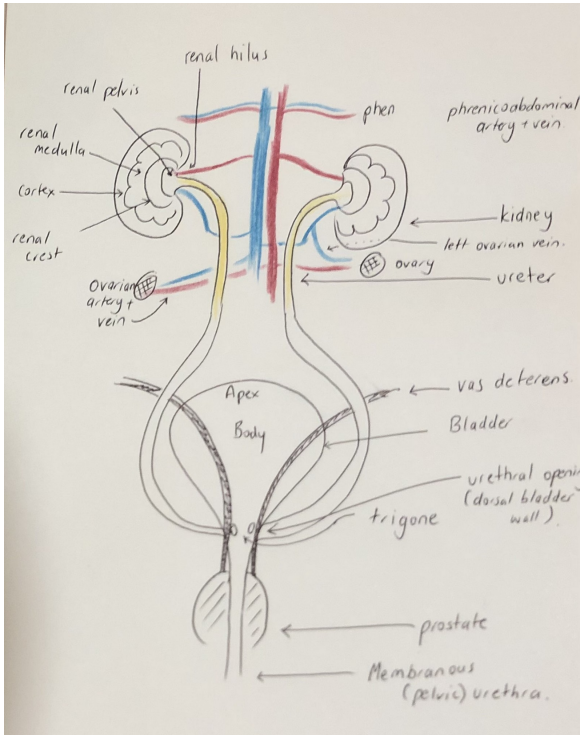 renal hilus
renal pelvis
phen
phrenicoabdominal
artery + vein.
renal
medulla
cortex
kidney
renal
crest
left ovarian vein.
ovary
ureter
Ovarian
artery +
vein
vas deferens.
Apex
Body
Bladder
urethral openin
(dorsal bladder
wall).
trigone
prostate
Membranous
(pelvic) urethra.